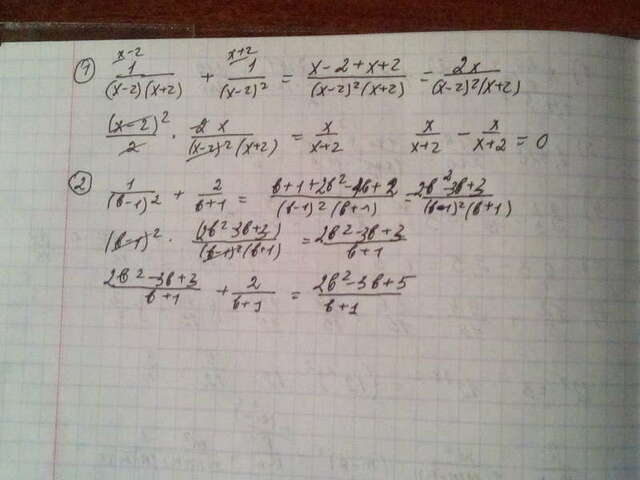 x-2 x+2
① 1/((x-2)(x+2)) + 1/(x-2)² = (x-2+x+2)/((x-2)²(x+2)) = 2x/((x-2)²(x+2))
(x-2)²/2 · 2x/((x-2)²(x+2)) = x/(x+2) x/(x+2) - x/(x+2) = 0
② 1/(b-1)² + 2/(b+1) = (b+1+2b²-4b+2)/((b-1)²(b+1)) = (2b²-3b+3)/((b-1)²(b+1))
(b-1)² · (2b²-3b+3)/((b-1)²(b+1)) = (2b²-3b+3)/(b+1)
(2b²-3b+3)/(b+1) + 2/(b+1) = (2b²-3b+5)/(b+1)